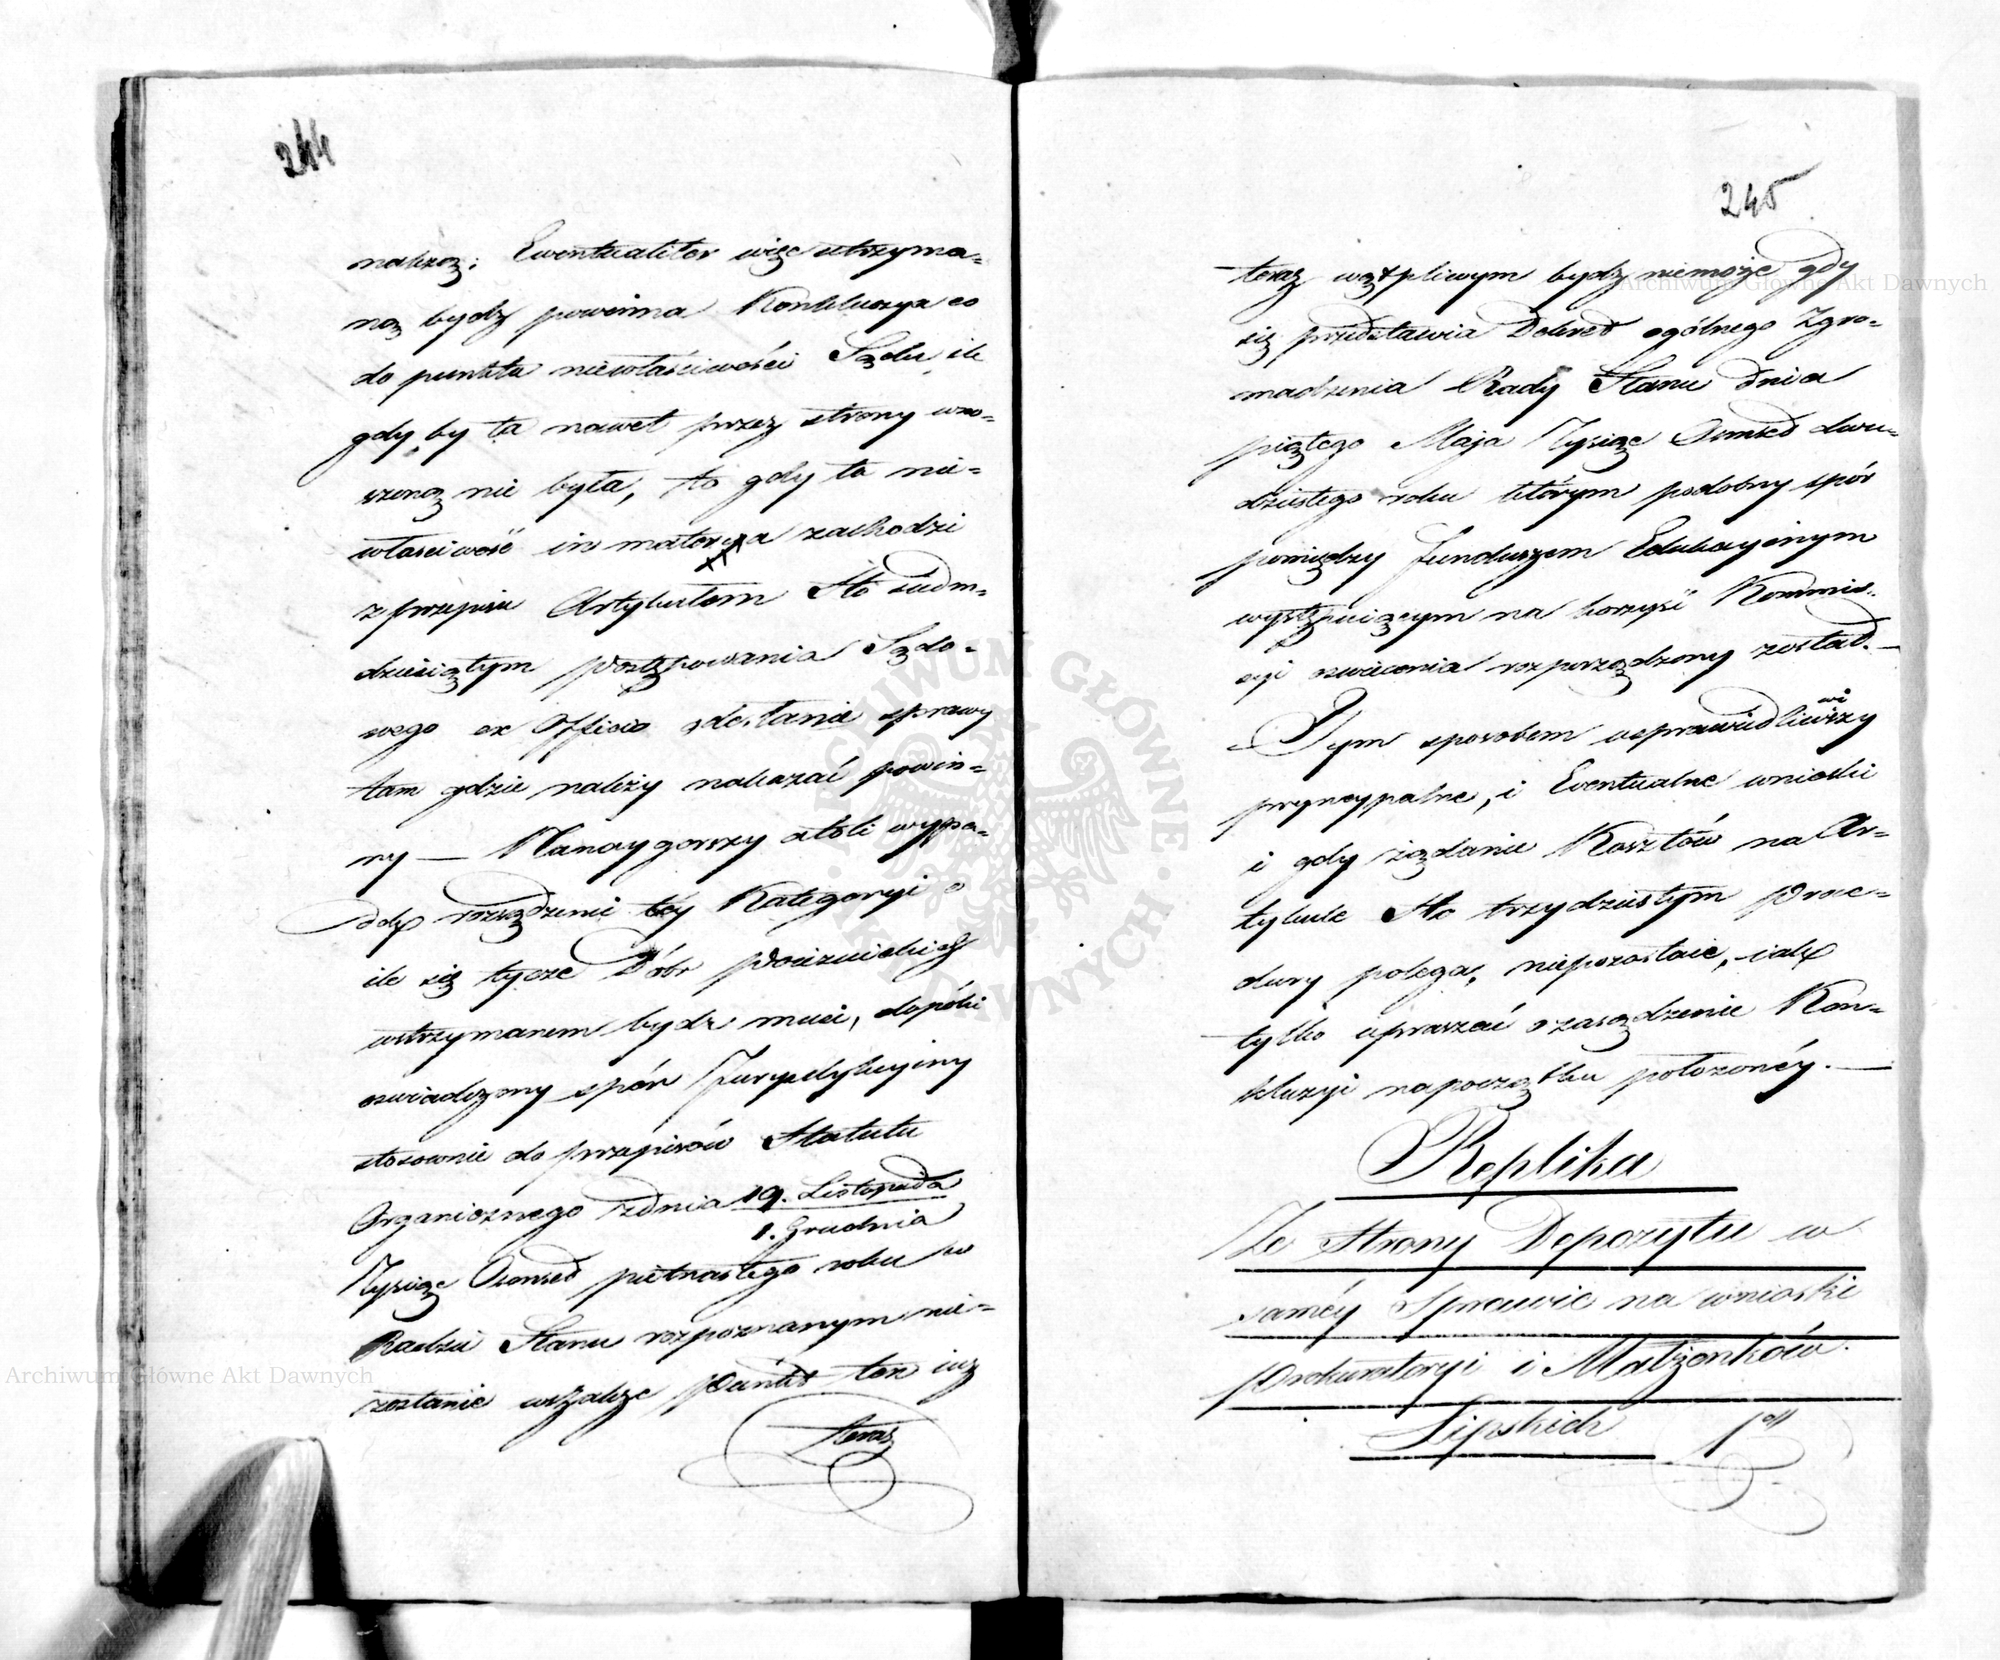 244
nakaz; Eventualiter więc utrzyma-
ną bydź powinna Konkluzya co
do punktu niewłaściwości Sądu, ile
gdy by ta nawet przez strony wno-
szoną nie była, to gdy ta nie-
właściwość in materya zachodzi
z przepisu Artykułem Sto siedm-
dziesiątym Postępowania Sądo-
wego ex Officio odesłanie sprawy
tam gdzie należy nakazać powin-
ny — Nanaygorszy atoli wypa-
dek rozsądzenie tey Kategoryi o
ile się tycze Dóbr
wstrzymanem bydź musi, dopóki
oświadczony spór Jurysdykcyiny
stosownie do przepisów Statutu
Organicznego z dnia 19. Listopada
1. Grudnia
Tysiąc Osmset piętnastego roku w
Radzie Stanu rozpoznanym nie-
zostanie wszakże Punkt ten iuż
teraz
245
teraz wątpliwym bydź niemoże gdy
się przedstawia Dekret ogólnego Zgro-
madzenia Rady Stanu dnia
piątego Maja Tysiąc Osmset dwu-
dziestego roku którym podobny spór
pomiędzy funduszem Edukacyinym
występuiącym na korzyść Kommis-
syi oswiecenia rozporządzony został. —
Tym sposobem usprawiedliwiwszy
pryncypalne, i Eventualne wnioski
i gdy żądanie Kosztów na Ar-
tykule Sto trzydziestym Proce-
dury polega, niepozostaie, iak
tylko upraszać o zasądzenie Kon-
kluzyi napoczątku położonéy. —
Replika
Ze Strony Depozytu w
saméy Sprawie na wnioski
Prokuratoryi i Małżonków
Lipskich